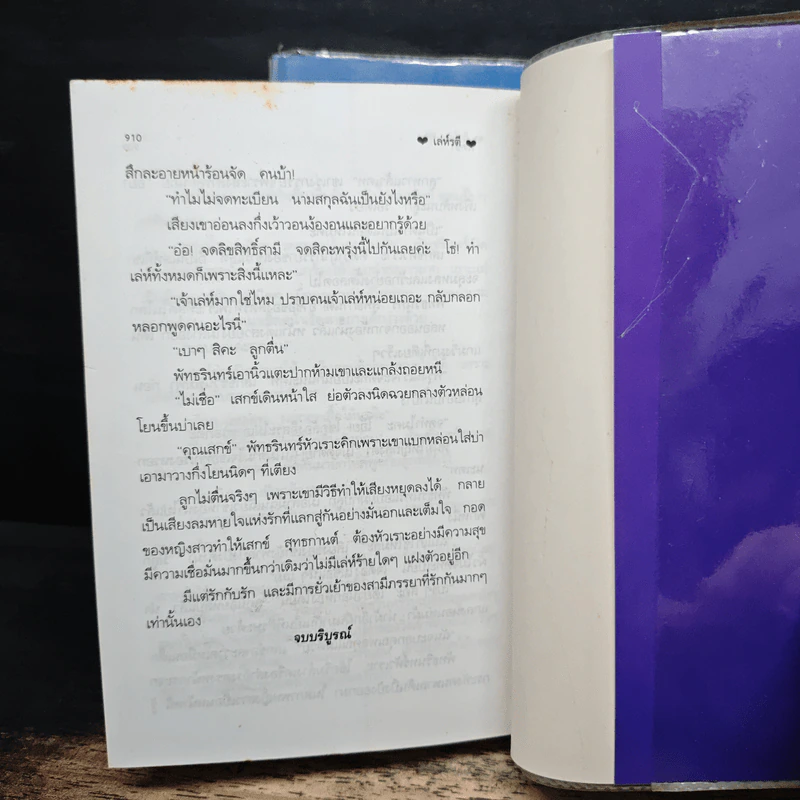 910
❤ เล่ห์รตี ❤
สึกละอายหน้าร้อนจัด คนบ้า!
"ทำไมไม่จดทะเบียน นามสกุลฉันเป็นยังไงหรือ"
เสียงเขาอ่อนลงกึ่งเว้าวอนง้องอนและอยากรู้ด้วย
"อ๋อ! จดลิขสิทธิ์สามี จดสิคะพรุ่งนี้ไปกันเลยค่ะ โช่! ทำ
เล่ห์ทั้งหมดก็เพราะสิ่งนี้แหละ"
"เจ้าเล่ห์มากใช่ไหม ปราบคนเจ้าเล่ห์หน่อยเถอะ กลับกลอก
หลอกพูดคนอะไรนี่"
"เบาๆ สิคะ ลูกตื่น"
พัทธรินทร์เอานิ้วแตะปากห้ามเขาและแกล้งถอยหนี
"ไม่เชื่อ" เสกข์เดินหน้าใส ย่อตัวลงนิดฉวยกลางตัวหล่อน
โยนขึ้นบ่าเลย
"คุณเสกข์" พัทธรินทร์หัวเราะคิกเพราะเขาแบกหล่อนใส่บ่า
เอามาวางกึ่งโยนนิดๆ ที่เตียง
ลูกไม่ตื่นจริงๆ เพราะเขามีวิธีทำให้เสียงหยุดลงได้ กลาย
เป็นเสียงลมหายใจแห่งรักที่แลกสู่กันอย่างมั่นอกและเต็มใจ กอด
ของหญิงสาวทำให้เสกข์ สุทธกานต์ ต้องหัวเราะอย่างมีความสุข
มีความเชื่อมั่นมากขึ้นกว่าเดิมว่าไม่มีเล่ห์ร้ายใดๆ แฝงตัวอยู่อีก
มีแต่รักกับรัก และมีการยั่วเย้าของสามีภรรยาที่รักกันมากๆ
เท่านั้นเอง
จบบริบูรณ์